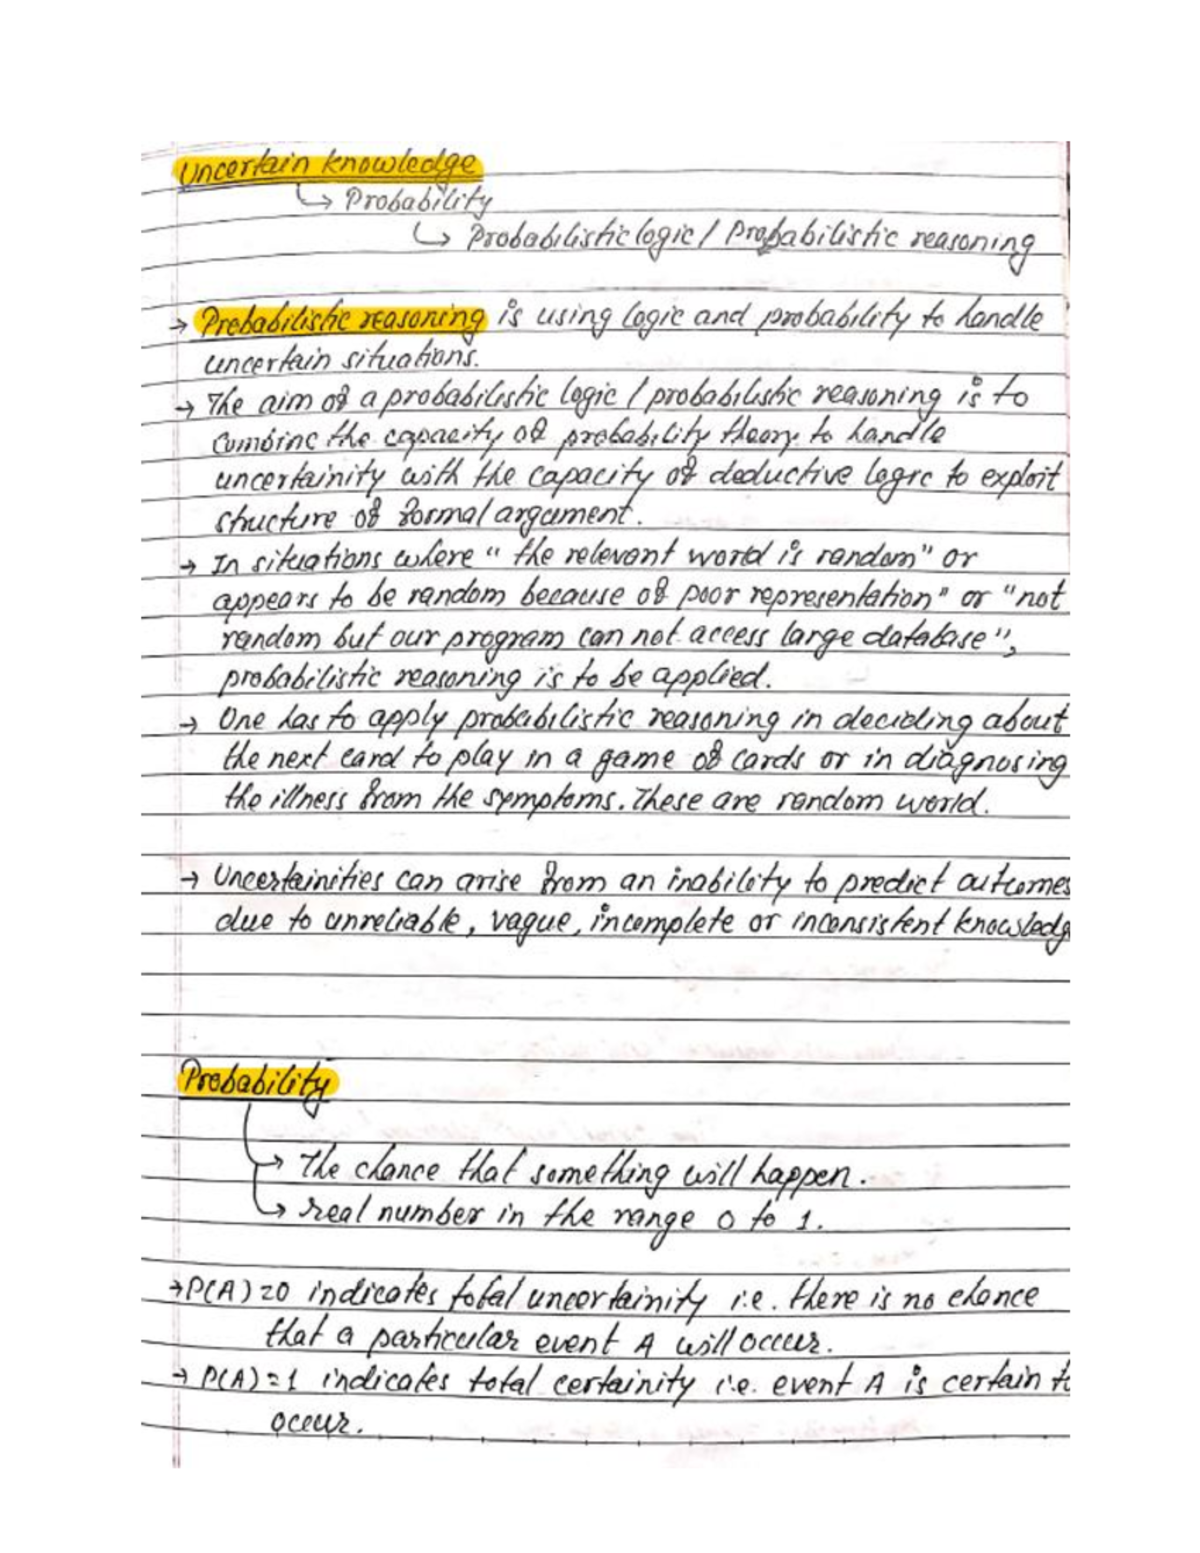 Uncertain knowledge
↳ Probability
↳ Probabilistic logic / Probabilistic reasoning
→ Probabilistic reasoning is using logic and probability to handle
uncertain situations.
→ The aim of a probabilistic logic / probabilistic reasoning is to
combine the capacity of probability theory to handle
uncertainity with the capacity of deductive logic to exploit
structure of formal argument.
→ In situations where "the relevant world is random" or
appears to be random because of poor representation" or "not
random but our program can not access large database",
probabilistic reasoning is to be applied.
→ One has to apply probabilistic reasoning in deciding about
the next card to play in a game of cards or in diagnosing
the illness from the symptoms. These are random world.
→ Uncertainities can arise from an inability to predict outcomes
due to unreliable, vague, incomplete or inconsistent knowledg
Probability
→ The chance that something will happen.
↳ real number in the range 0 to 1.
→ P(A)=0 indicates total uncertainity i.e. there is no chance
that a particular event A will occur.
→ P(A)=1 indicates total certainity i.e. event A is certain to
occur.